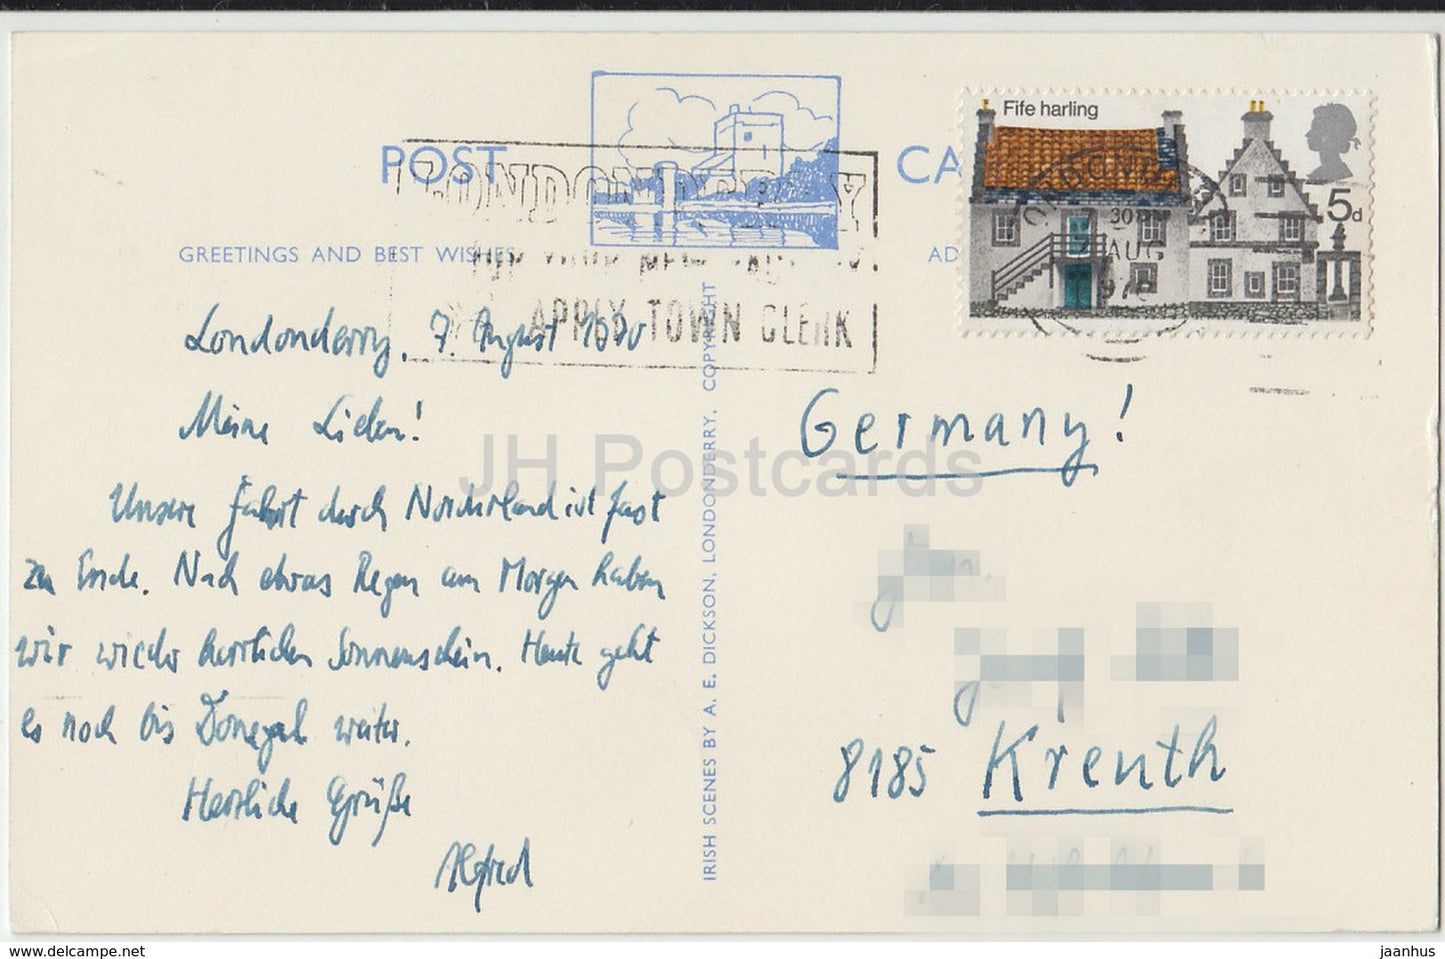 POST CA
GREETINGS AND BEST WISHES
AD
LONDONDERRY
APPLY TOWN CLERK
Fife harling
5d
30
7 AUG
1970
Londonderry, 7. August 1970
Meine Lieben!
Unsere Fahrt durch Nordirland ist fast
zu Ende. Nach etwas Regen am Morgen haben
wir wieder herrlichen Sonnenschein. Heute geht
es noch bis Donegal weiter.
Herzliche Grüße
Alfred
IRISH SCENES BY A. E. DICKSON, LONDONDERRY. COPYRIGHT
Germany!
8185 Kreuth
JH Postcards
https://www.delcampe.net
jaanhus